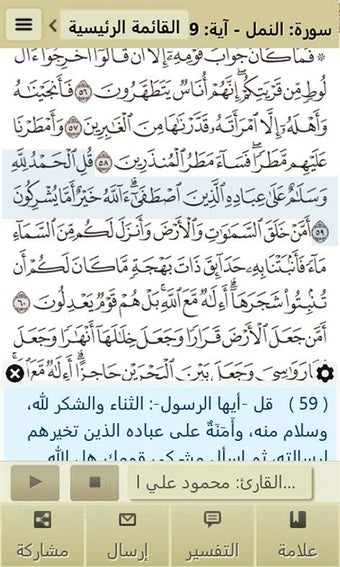 سورة: النمل - آية: 9
القائمة الرئيسية
۞ فَمَا كَانَ جَوَابَ قَوْمِهِ إِلَّا أَن قَالُوا أَخْرِجُوا ءَالَ
لُوطٍ مِّن قَرْيَتِكُمْ إِنَّهُمْ أُنَاسٌ يَتَطَهَّرُونَ ٥٦ فَأَنجَيْنَٰهُ
وَأَهْلَهُ إِلَّا امْرَأَتَهُ قَدَّرْنَٰهَا مِنَ الْغَٰبِرِينَ ٥٧ وَأَمْطَرْنَا
عَلَيْهِم مَّطَرًا فَسَاءَ مَطَرُ الْمُنذَرِينَ ٥٨ قُلِ الْحَمْدُ لِلَّهِ
وَسَلَٰمٌ عَلَىٰ عِبَادِهِ الَّذِينَ اصْطَفَىٰ ءَاللَّهُ خَيْرٌ أَمَّا يُشْرِكُونَ
٥٩ أَمَّنْ خَلَقَ السَّمَٰوَٰتِ وَالْأَرْضَ وَأَنزَلَ لَكُم مِّنَ السَّمَاءِ
مَاءً فَأَنبَتْنَا بِهِ حَدَائِقَ ذَاتَ بَهْجَةٍ مَّا كَانَ لَكُمْ أَن
تُنبِتُوا شَجَرَهَا أَءِلَٰهٌ مَّعَ اللَّهِ بَلْ هُمْ قَوْمٌ يَعْدِلُونَ ٦٠
أَمَّن جَعَلَ الْأَرْضَ قَرَارًا وَجَعَلَ خِلَٰلَهَا أَنْهَٰرًا وَجَعَلَ
لَهَا رَوَٰسِيَ وَجَعَلَ بَيْنَ الْبَحْرَيْنِ حَاجِزًا أَءِلَٰهٌ مَّعَ
( 59 ) قل -أيها الرسول-: الثناء والشكر لله،
وسلام منه، وأَمَنَةٌ على عباده الذين تخيرهم
لرسالته، ثم اسأل مشركي قومك هل الله
القارئ: محمود علي ا...
علامة
التفسير
إرسال
مشاركة